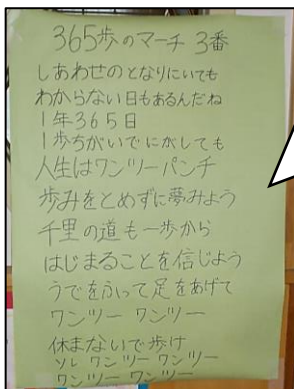 365歩のマーチ 3番
しあわせのとなりにいても
わからない日もあるんだね
1年365日
1歩ちがいでにがしても
人生はワンツーパンチ
歩みをとめずに夢みよう
千里の道も一歩から
はじまることを信じよう
うでをふって足をあげて
ワンツー ワンツー
休まないで歩け
ソレ ワンツー ワンツー
ワンツー ワンツー